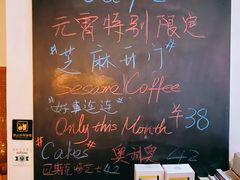 元宵特别限定
"芝麻开门"
Sesame Coffee
"好事连连"
Only this Month ￥38
"Cakes" 奥利奥 42
巴斯克芝士 42